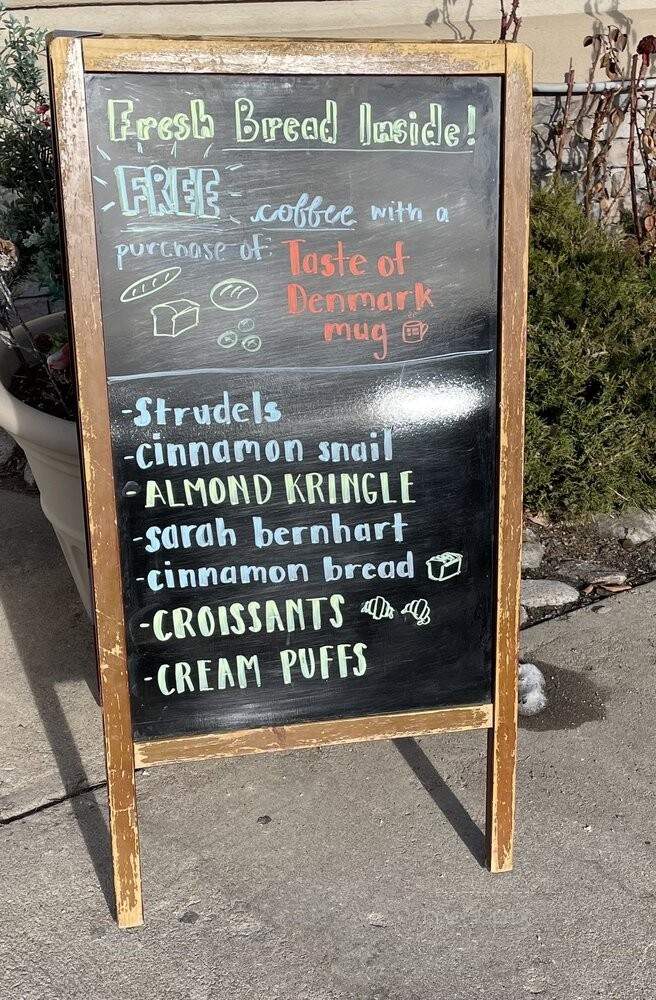 Fresh Bread Inside!
FREE coffee with a
purchase of: Taste of
Denmark
mug
-Strudels
-cinnamon snail
-ALMOND KRINGLE
-sarah bernhart
-cinnamon bread
-CROISSANTS
-CREAM PUFFS